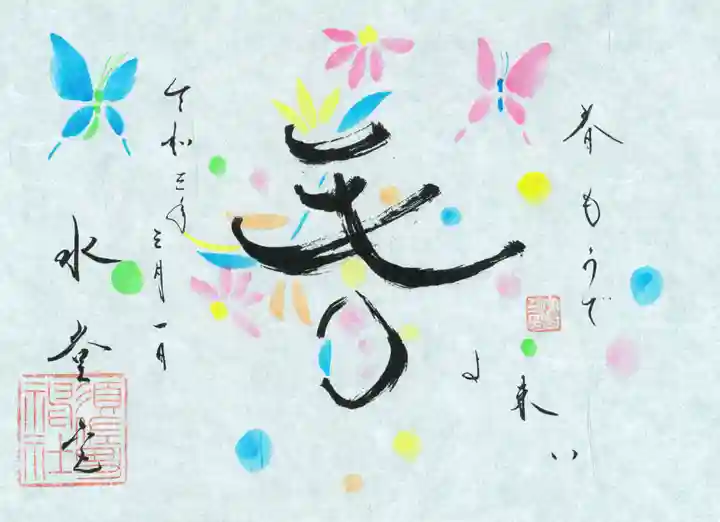 春もうで
春
よ来い
令和三年三月一日
水堂宮
須佐男
神社